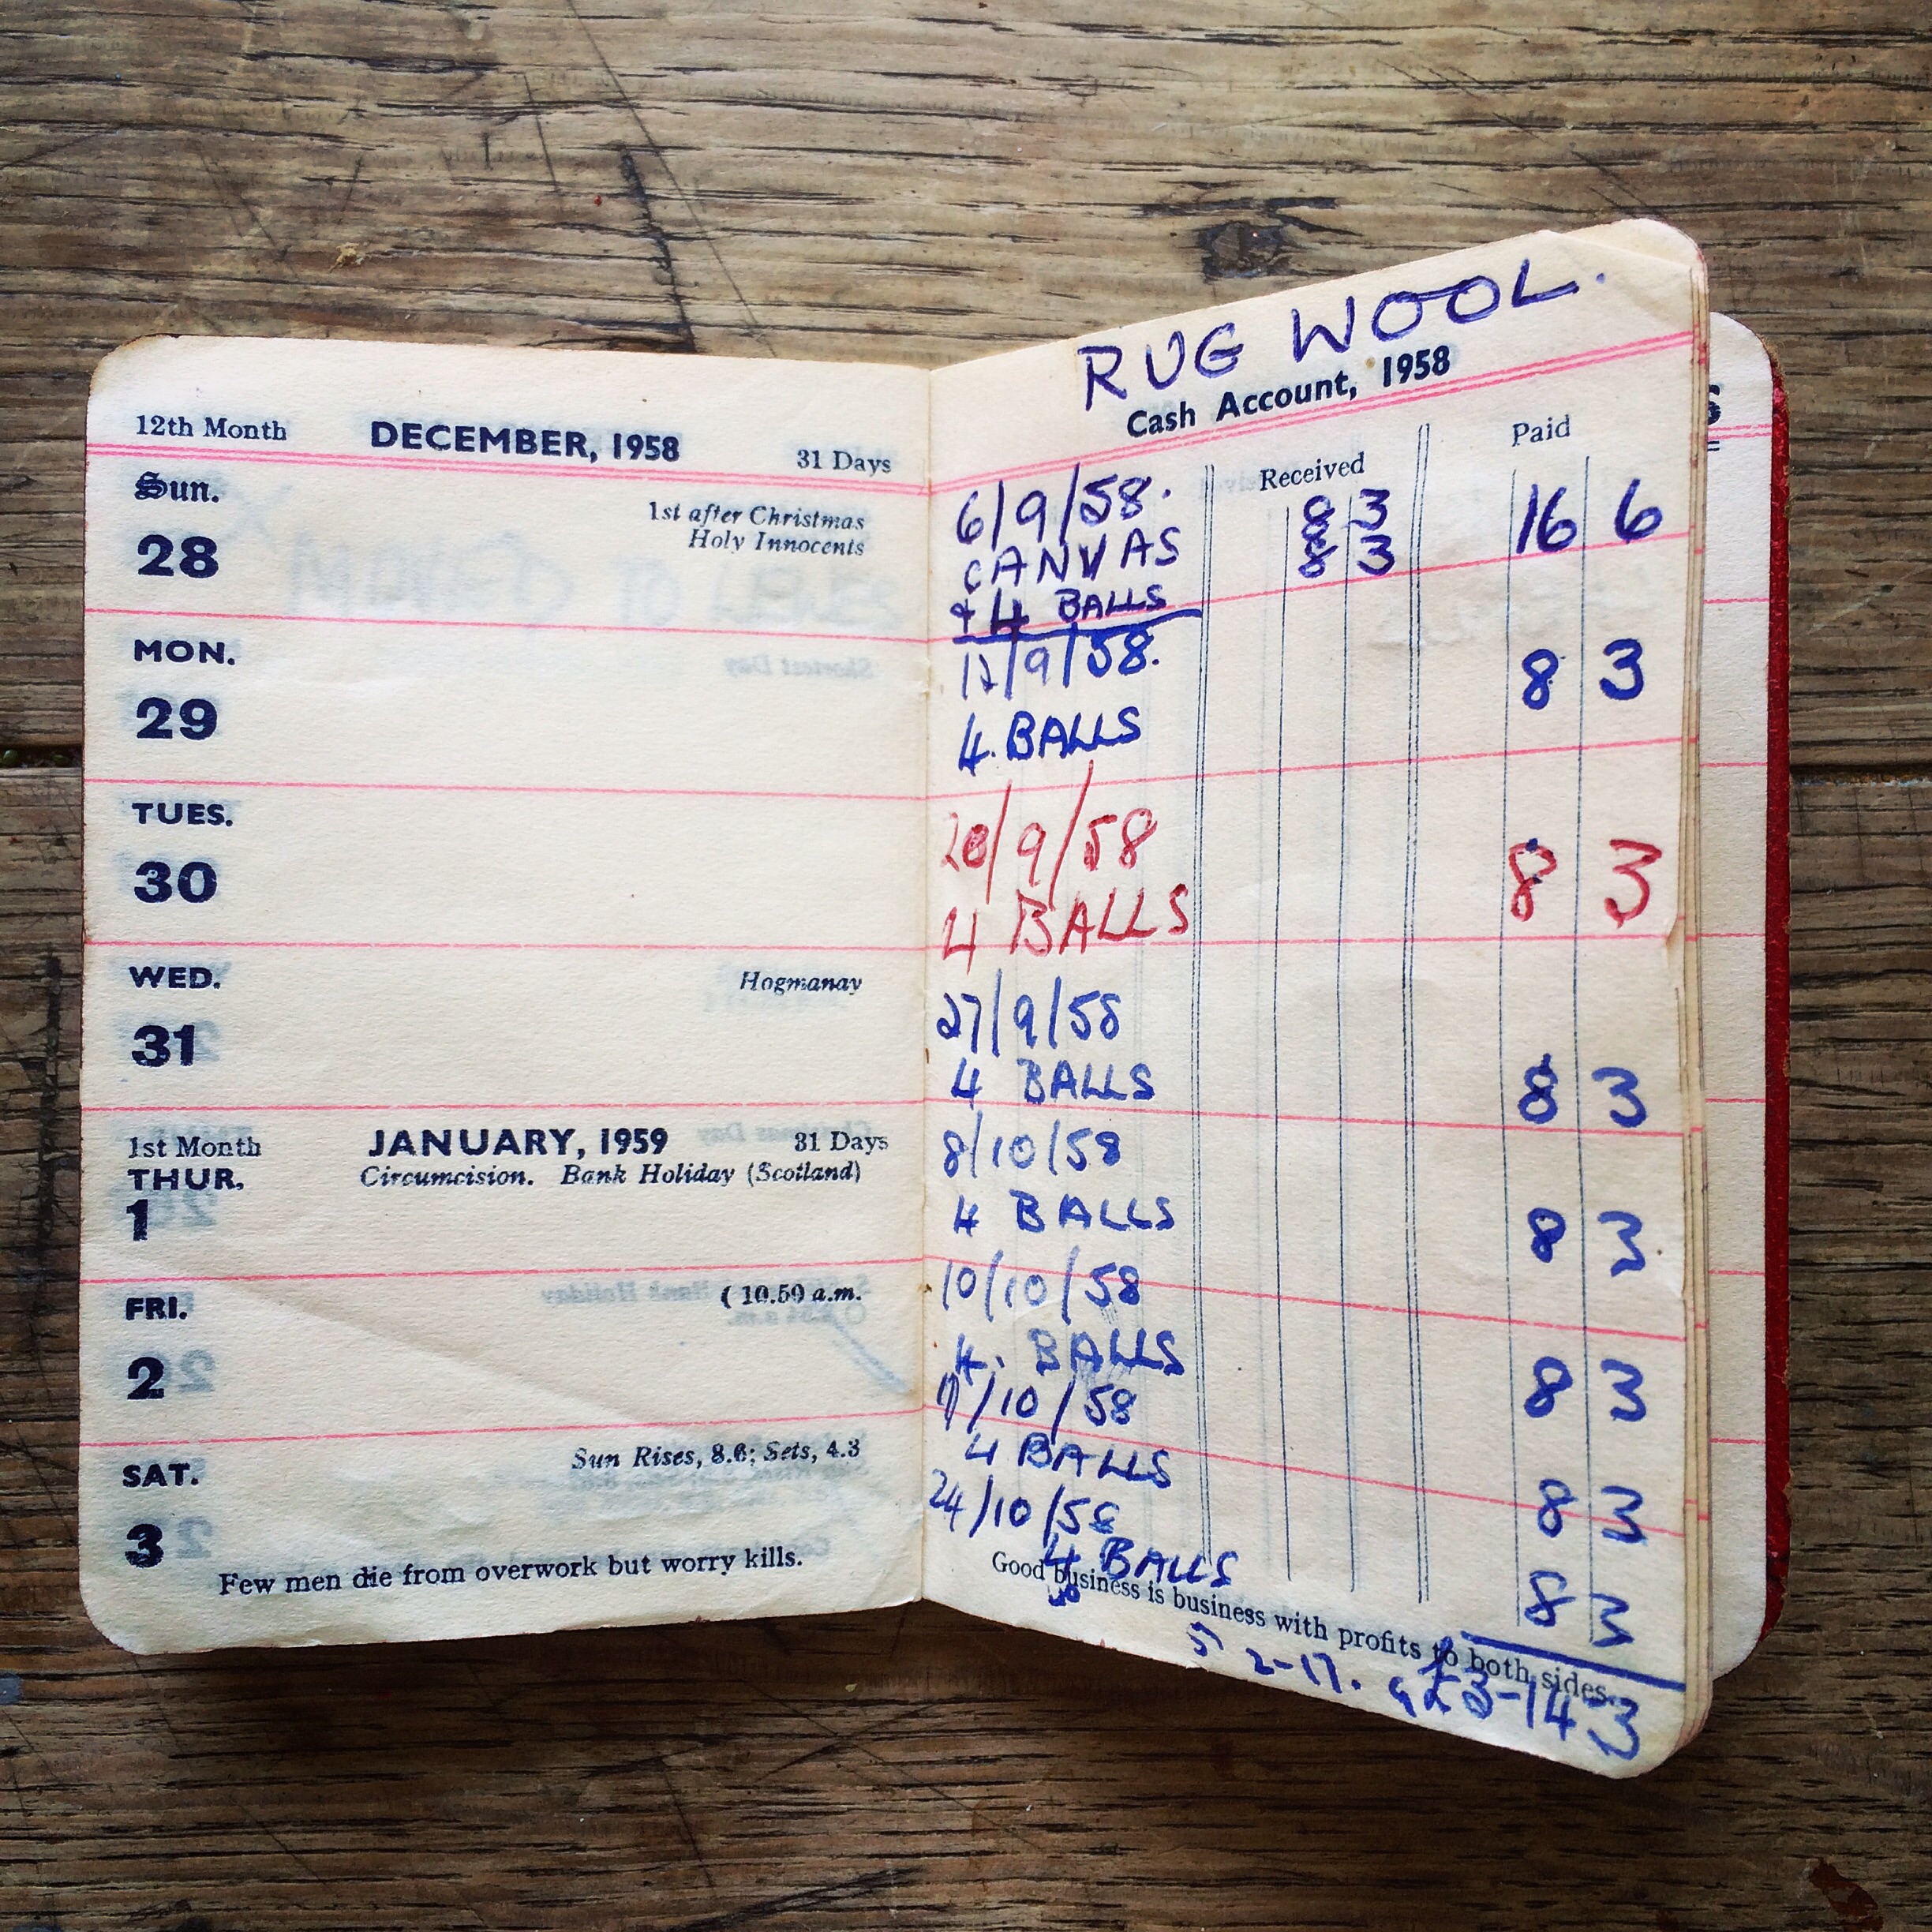 12th Month DECEMBER, 1958 31 Days
Sun.
1st after Christmas
28 Holy Innocents
MON.
29
TUES.
30
WED. Hogmanay
31
1st Month JANUARY, 1959 31 Days
THUR. Circumcision. Bank Holiday (Scotland)
1
FRI. ( 10.50 a.m.
2
SAT. Sun Rises, 8.6; Sets, 4.3
3
Few men die from overwork but worry kills.
RUG WOOL.
Cash Account, 1958
Received Paid
6/9/58. 8 3 16 6
CANVAS 8 3
+ 4 BALLS
9/58. 8 3
4. BALLS
20/9/58 8 3
4 BALLS
27/9/58
4 BALLS 8 3
8/10/58
4 BALLS 8 3
10/10/58
4. BALLS 8 3
/10/58
4 BALLS 8 3
24/10/58
4 BALLS 8 3
Good business is business with profits to both sides.
2-17. £3-14 3